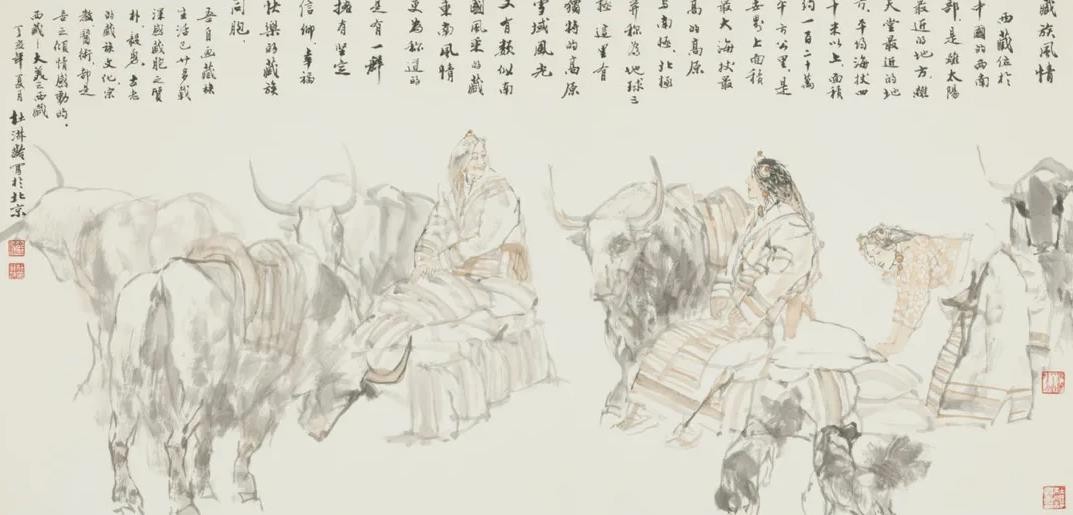 藏族風情
西藏位於
中國的西南
部,是離太陽
最近的地方,離
天堂最近的地
方,平均海拔四
千米以上,面積
約一百二十萬
平方公里,是
世界上面積
最大,海拔最
高的高原
與南極、北極
并称為地球三
極,這里有
獨特的高原
雪域風光
又有類似南
國風采的藏
東南風情
更為称道的
是有一群
擁有堅定
信仰,幸福
快樂的藏族
同胞.
吾自画藏族
生活已廿多載
深感藏胞之質
朴、毅勇,古老
的藏族文化,宗
教,醫術,都是
吾之傾情感動的.
西藏—大美之西藏
丁亥年夏月 杜滋齡寫於北京